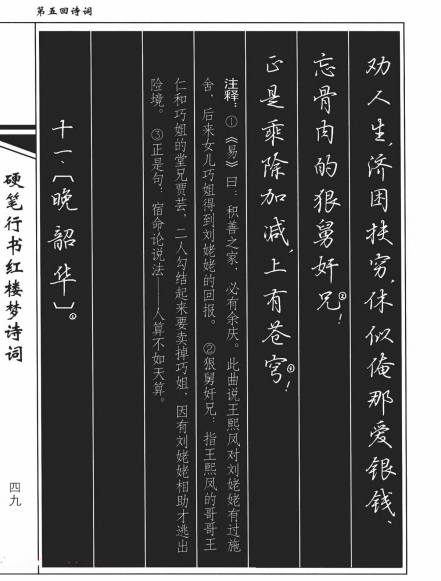 第五回诗词
劝人生，济困扶穷，休似俺那爱银钱、
忘骨肉的狠舅奸兄②！
正是乘除加减，上有苍穹③！
注释：①《易》曰：积善之家，必有余庆。此曲说王熙凤对刘姥姥有过施
舍，后来女儿巧姐得到刘姥姥的回报。②狠舅奸兄：指王熙凤的哥哥王
仁和巧姐的堂兄贾芸，二人勾结起来要卖掉巧姐，因有刘姥姥相助才逃出
险境。③正是句：宿命论说法——人算不如天算。
十一、〔晚韶华〕①
硬笔行书红楼梦诗词
四九